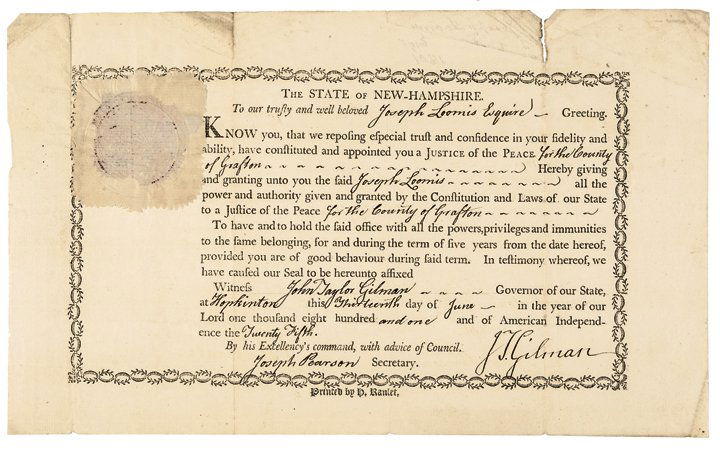 THE STATE OF NEW-HAMPSHIRE.
To our trusty and well beloved Joseph Loomis Esquire — Greeting.
KNOW you, that we reposing especial trust and confidence in your fidelity and
ability, have constituted and appointed you a JUSTICE of the PEACE for the County
of Grafton Hereby giving
and granting unto you the said Joseph Loomis all the
power and authority given and granted by the Constitution and Laws of our State
to a Justice of the Peace for the County of Grafton
To have and to hold the said office with all the powers, privileges and immunities
to the same belonging, for and during the term of five years from the date hereof,
provided you are of good behaviour during said term. In testimony whereof, we
have caused our Seal to be hereunto affixed
Witness John Taylor Gilman Governor of our State,
at Hopkinton this Thirteenth day of June — in the year of our
Lord one thousand eight hundred and one and of American Independ-
ence the Twenty Fifth.
By his Excellency's command, with advice of Council.
J T Gilman
Joseph Pearson Secretary.
Printed by H. Ranlet.